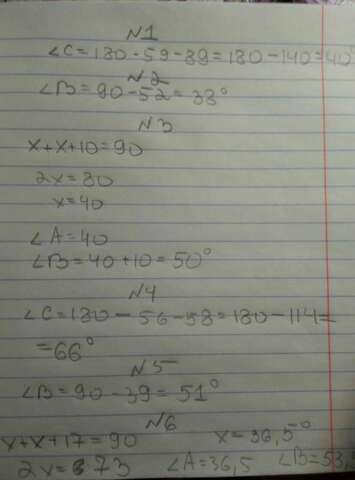 N1
∠C=180-59-89=180-140=40
N2
∠B=90-52=38°
N3
x+x+10=90
2x=80
x=40
∠A=40
∠B=40+10=50°
N4
∠C=180-56-58=180-114=
=66°
N5
∠B=90-39=51°
N6
x+x+17=90 x=36,5°
2x=73 ∠A=36,5 ∠B=53,5